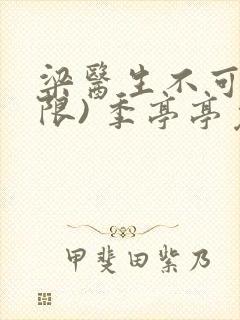 梁醫生不可
限)季亭亭
甲斐田紫乃